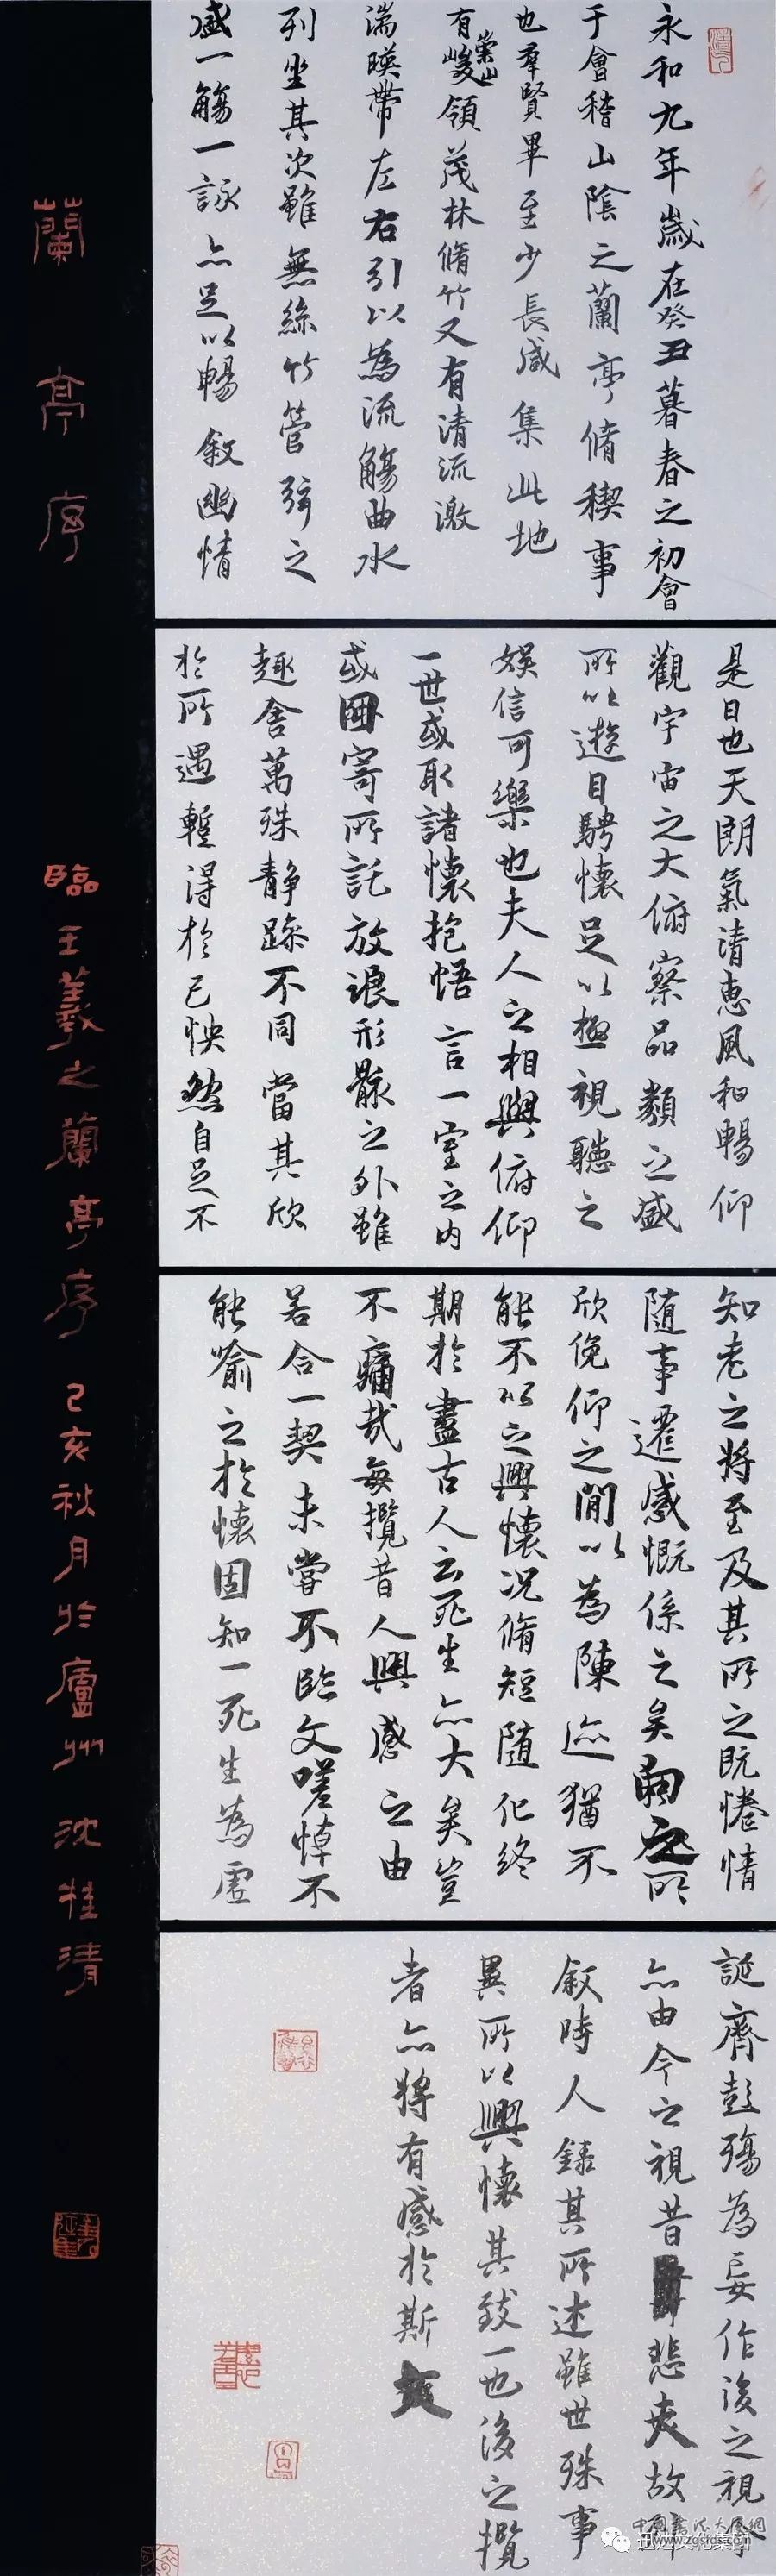 永和九年歲在癸丑暮春之初會
于會稽山陰之蘭亭脩稧事
也羣賢畢至少長咸集此地
有崇山峻領茂林脩竹又有清流激
湍暎帶左右引以為流觴曲水
列坐其次雖無絲竹管弦之
盛一觴一詠亦足以暢敘幽情
是日也天朗氣清惠風和暢仰
觀宇宙之大俯察品類之盛
所以遊目騁懷足以極視聽之
娛信可樂也夫人之相與俯仰
一世或取諸懷抱悟言一室之內
或因寄所託放浪形骸之外雖
趣舍萬殊靜躁不同當其欣
於所遇蹔得於己怏然自足不
知老之將至及其所之既惓情
隨事遷感慨係之矣向之所
欣俛仰之閒以為陳迹猶不
能不以之興懷況脩短隨化終
期於盡古人云死生亦大矣豈
不痛哉每攬昔人興感之由
若合一契未嘗不臨文嗟悼不
能喻之於懷固知一死生為虛
誕齊彭殤為妄作後之視今
亦由今之視昔悲夫故列
敘時人錄其所述雖世殊事
異所以興懷其致一也後之攬
者亦將有感於斯文
蘭亭序
臨王羲之蘭亭序己亥秋月於廬州沈桂清
中國書法大展網
www.zgsfds.com